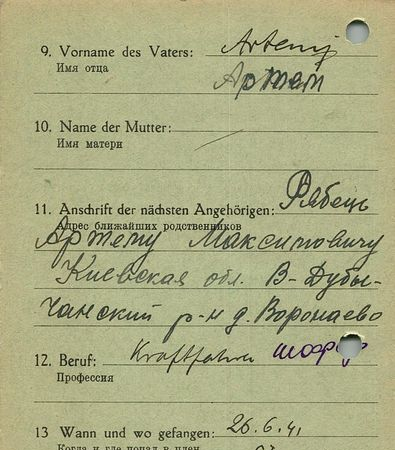 9. Vorname des Vaters: Artemij
Имя отца Артем
10. Name der Mutter:
Имя матери
11. Anschrift der nächsten Angehörigen: Рябець
Адрес ближайших родственников
Артему Максимовичу
Киевская обл. В-Дубы-
чанский р-н д. Воронаево
12. Beruf: Kraftfahrer шофер
Профессия
13 Wann und wo gefangen: 26.6.41
Когда и где попал в плен